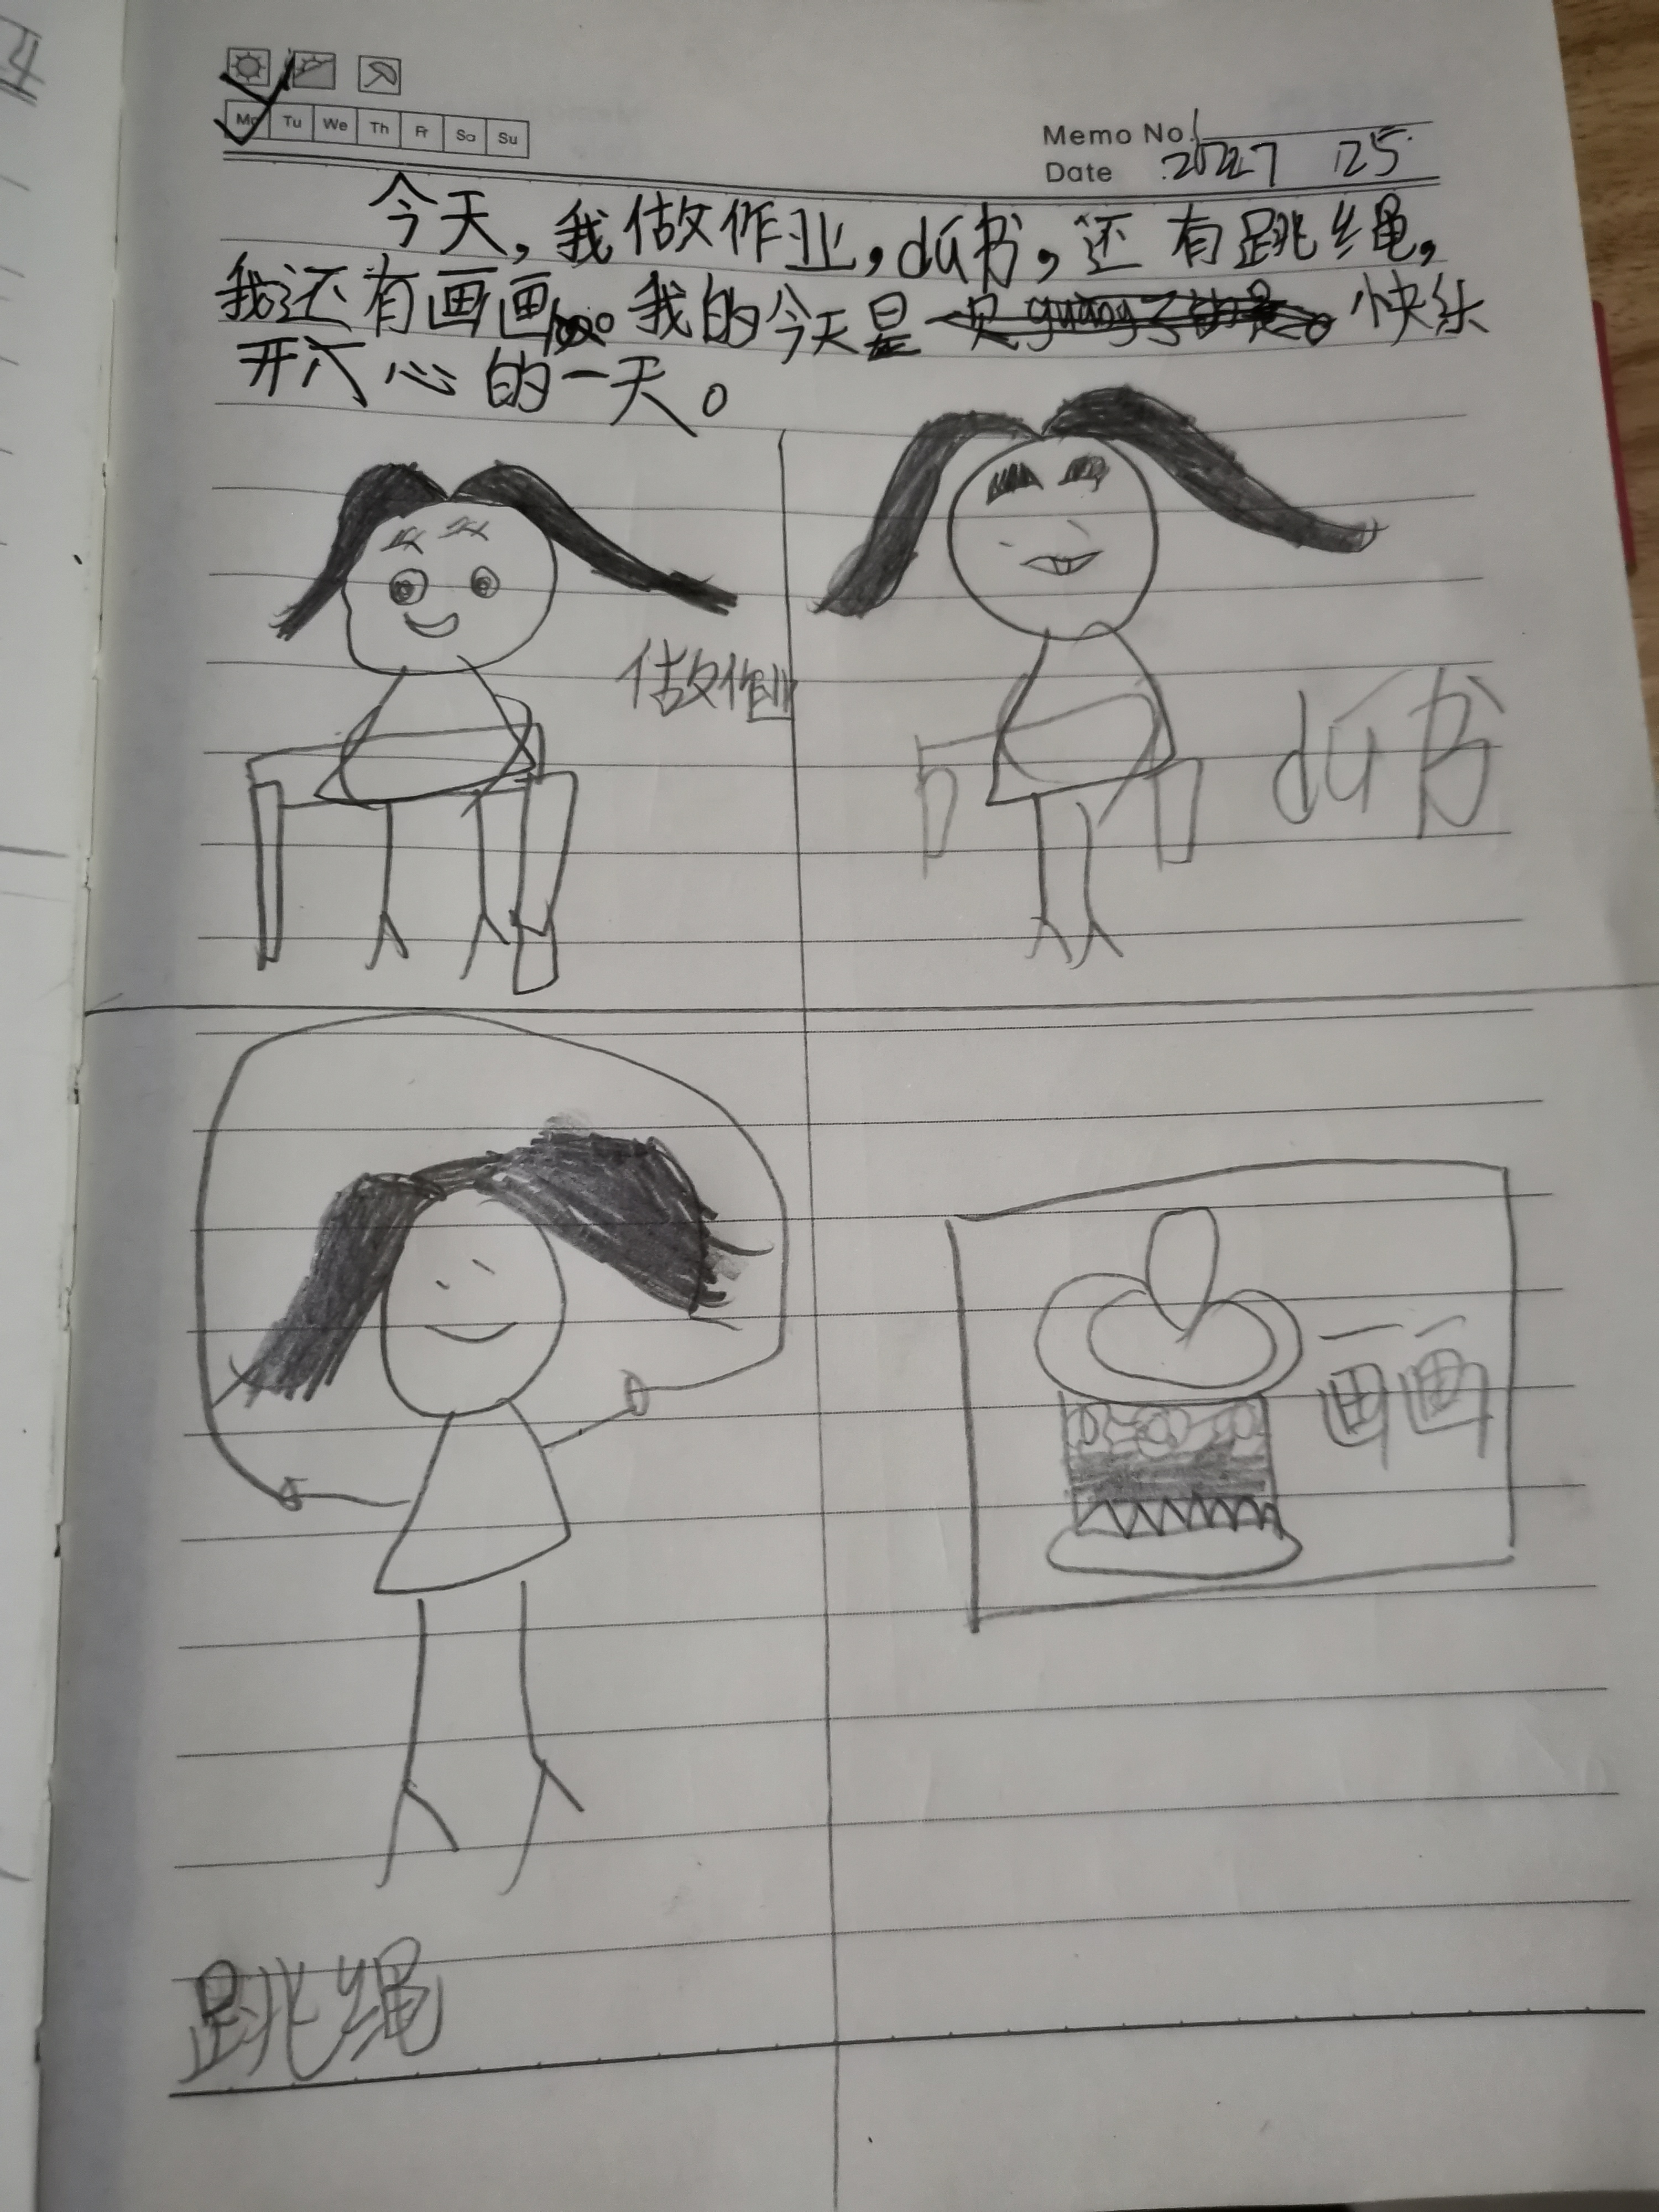 Mo Tu We Th Fr Sa Su
Memo No.
Date 2022 7 25
今天,我做作业,dú书,还有跳绳,
我还有画画。我的今天是 快乐
开心的一天。
做作业
dú书
画画
跳绳